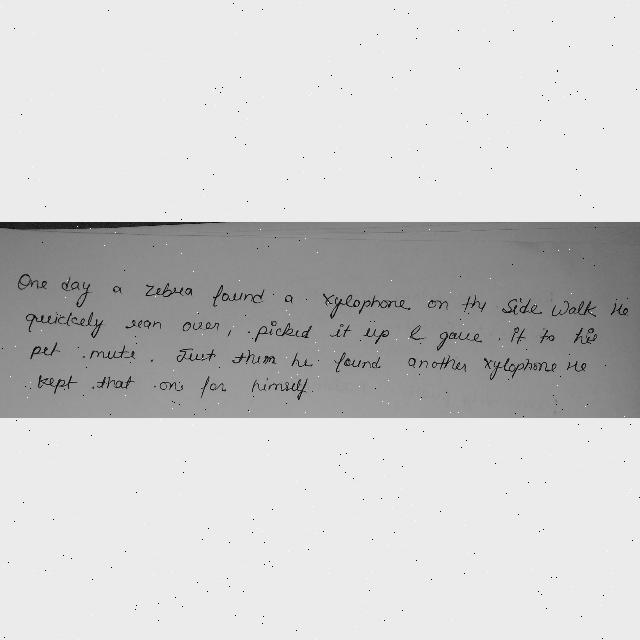 One day a zebra found a xylophone on the Side Walk He
quickely ran over, picked it up & gave it to his
pet mute. Just them he found another xylophone He
kept that one for himself.